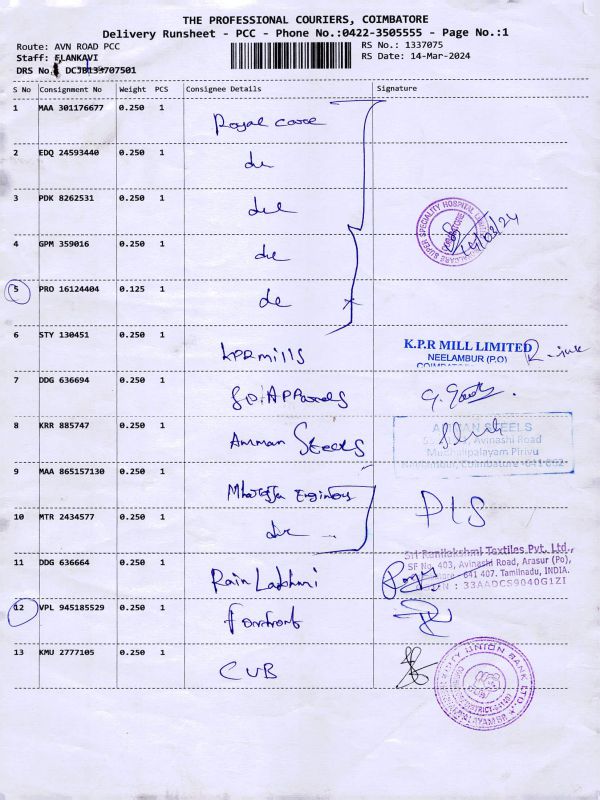 THE PROFESSIONAL COURIERS, COIMBATORE
Delivery Runsheet - PCC - Phone No.:0422-3505555 - Page No.:1
Route: AVN ROAD PCC RS No.: 1337075
Staff: ELANKAVI RS Date: 14-Mar-2024
DRS No.
S No Consignment No Weight PCS Consignee Details Signature
1 MAA 301176677 0.250 1 Royal care
2 EDQ 24593440 0.250 1 do
3 PDK 8262531 0.250 1 do
4 GPM 359016 0.250 1 do
5 PRO 16124404 0.125 1 do
SPECIALITY HOSPITAL
14/03/24
6 STY 130451 0.250 1 KPR mills
K.P.R MILL LIMITED
NEELAMBUR (P.O)
7 DDG 636694 0.250 1
8 KRR 885747 0.250 1 Amman Steels
STEELS
Avinashi Road
Coimbatore - 641 062
9 MAA 865157130 0.250 1
10 MTR 2434577 0.250 1 do
11 DDG 636664 0.250 1
Sri Ranilakshmi Textiles Pvt. Ltd.,
SF No. 403, Avinashi Road, Arasur (Po),
641 407. Tamilnadu, INDIA.
33AADCS9040G1ZI
12 VPL 945185529 0.250 1
13 KMU 2777105 0.250 1 CUB
CITY UNION BANK LTD.